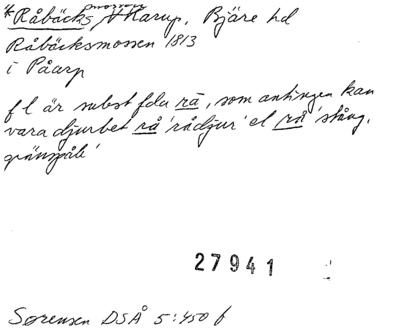 *Råbäcksmossen V Karup, Bjäre hd
Råbäcksmossen 1813
i Påarp
f l är subst fda rå, som antingen kan
vara djurbet rå 'rådjur' el rå 'stång,
gränspåle'
27941
Sørensen DSÅ 5:450 f